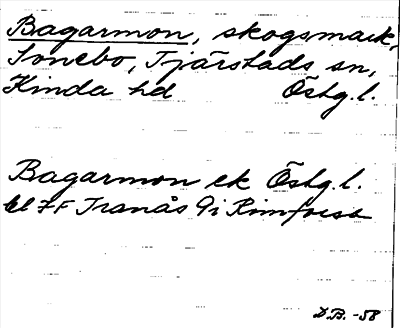 Bagarmon, skogsmark,
Sonebo, Tjärstads sn,
Kinda hd Östg.l.
Bagarmon ek Östg.l.
bl 7F Tranås 9i Rimforsa
D.B. -58